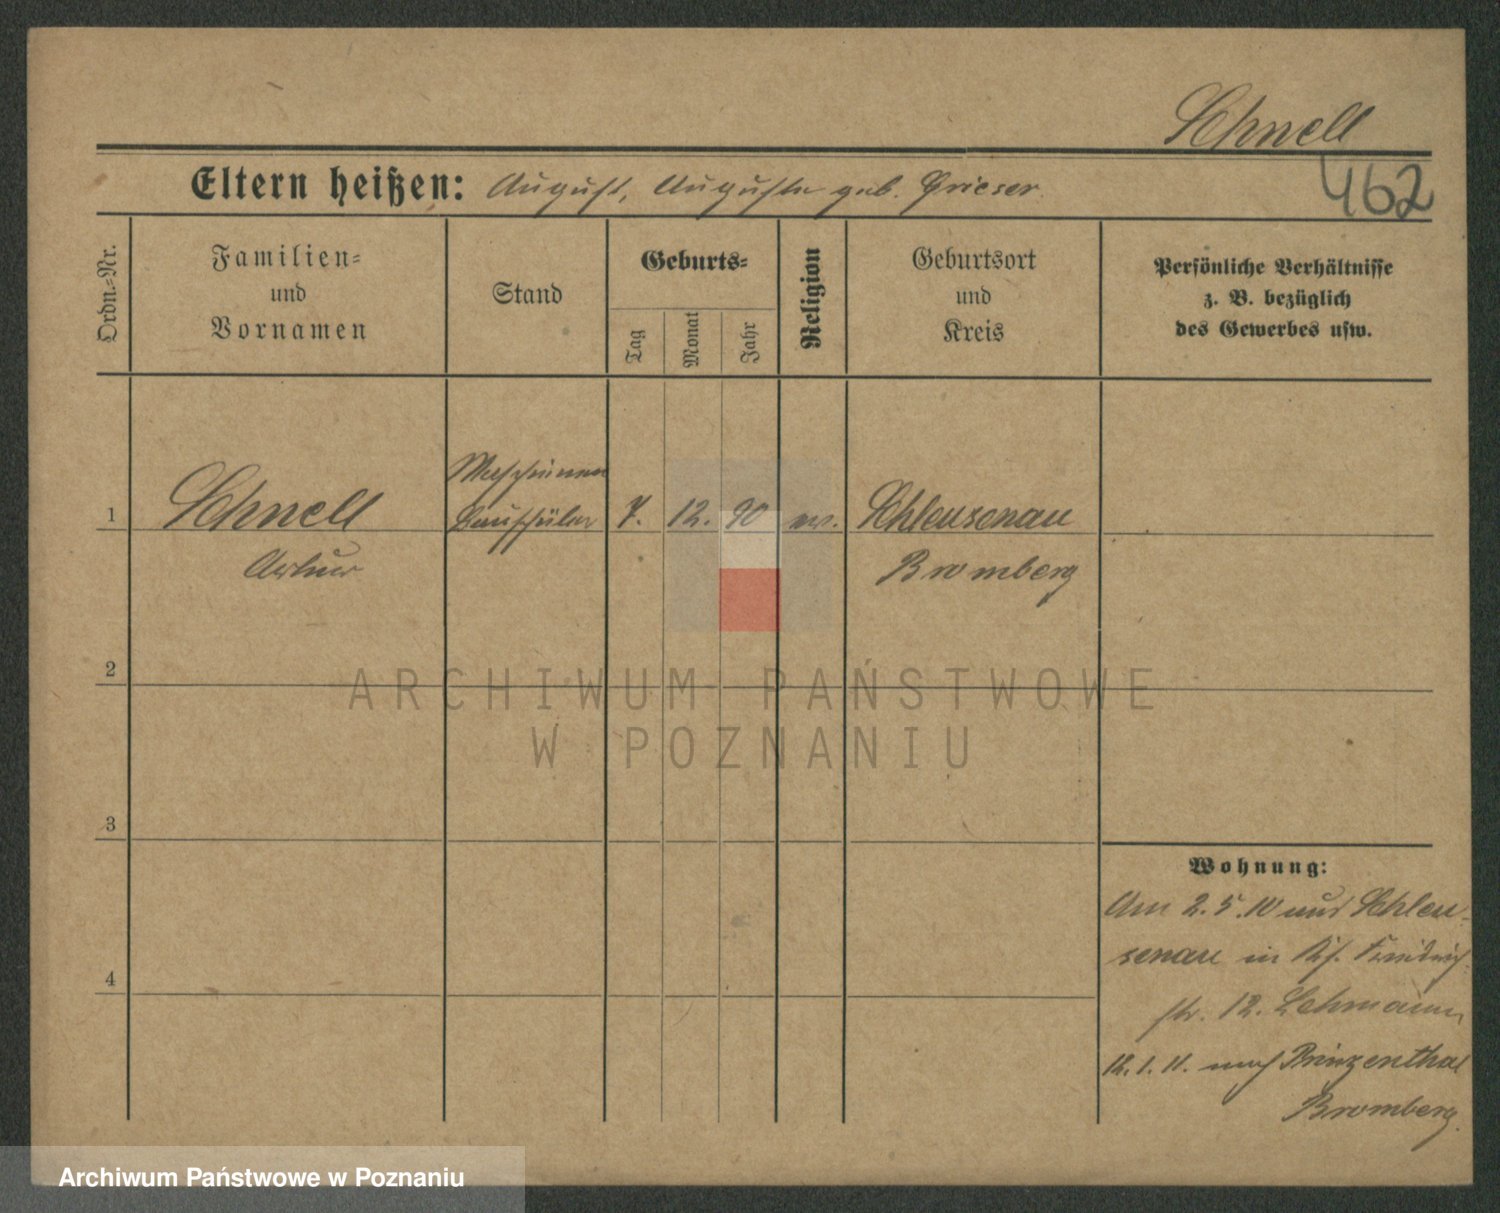 Schnell
462
Eltern heißen: August, Auguste geb. Grieser.
Ordn.-Nr.
Familien- und Vornamen
Stand
Geburts-
Tag
Monat
Jahr
Religion
Geburtsort und Kreis
Persönliche Verhältnisse z. B. bezüglich des Gewerbes usw.
Maschinen
1 Schnell bauschüler 7. 12. 90 ev. Schleusenau
Artur Bromberg
2
ARCHIWUM PAŃSTWOWE
W POZNANIU
3
Wohnung:
Am 2.5.10 aus Schleu-
senau in Kf. Friedrich-
str. 12. Lehmann
12.1.11. nach Prinzenthal
Bromberg.
4
Archiwum Państwowe w Poznaniu